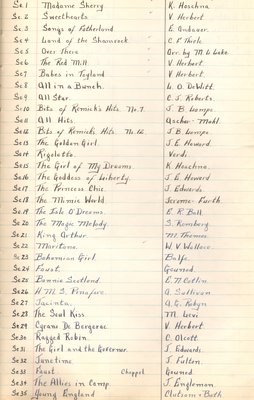 Se 1 Madame Sherry K. Hoschna
Se. 2 Sweethearts V Herbert
Se 3 Songs of Fatherland
Se 4 Land of the Shamrock C. F. Thiele
Se 5 Over There Arr. by M. L. Lake
Se6 The Red Mill V. Herbert
Se7 Babes in Toyland V Herbert
Se 8 All in a Bunch. L. O. DeWitt
Se9 All Star. C. J. Roberts.
Se10 Bits of Remick's Hits No. 7. J. B. Lampe
Se 11 All Hits.
Se12 Bits of Remick's Hits. No. 12. J. B. Lampe
Se 13 The Golden Girl. J. E. Howard.
Se 14 Rigoletto. Verdi
Se.15 The Girl of My Dreams K. Hoschna.
Se 16 The Goddess of Liberty. J. E. Howard
Se 17 The Princess Chic. J. Edwards
Se.18 The Mimic World Jerome-Furth
Se.19 The Isle O'Dreams. E. R. Ball
Se.20 The Magic Melody. S. Romberg
Se21 King Arthur. M. Thomas
Se.22 Maritana. W. V. Wallace.
Se.23 Bohemian Girl Balfe.
Se.24 Faust. Gounod.
Se.25 Bonnie Scotland E. N. Catlin.
Se26 H. M. S. Pinafore. A. Sullivan
Se27 Jacinta. A. G. Robyn
Se.28 The Soul Kiss. M. Levi.
Se.29 Cyrano De Bergerac V. Herbert
Se30 Ragged Robin. C. Olcott
Se.31 The Girl and the Governor. J. Edwards
Se.32 Junetime. J. Fulton.
Se33 Faust. Chappel Gounod.
Se.34 The Allies in Camp. J. Engleman.
Se35 Young England Clutsam & Bath